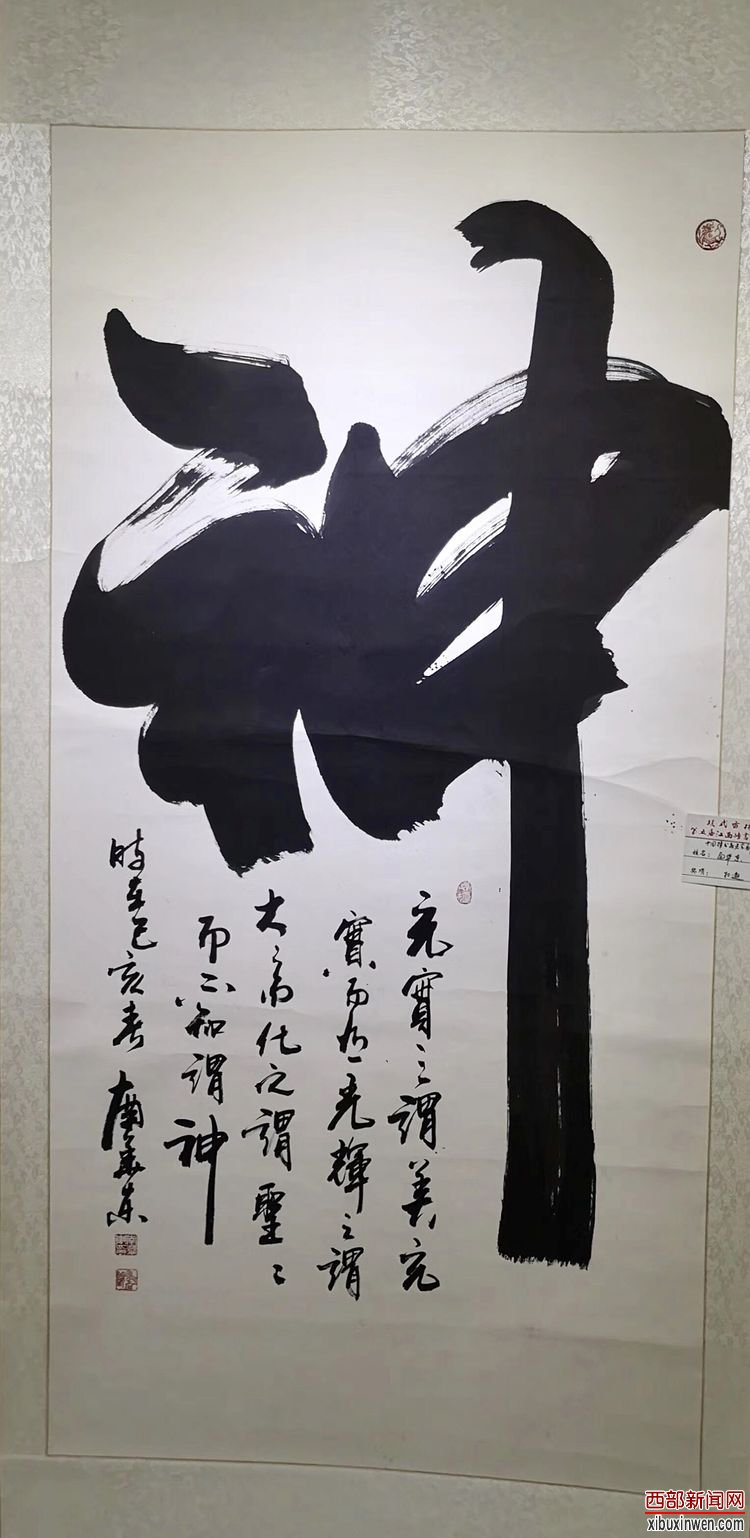 神
充實之謂美充
實而有光輝之謂
大〻而化之謂聖〻
而不知謂神
時在己亥春
姓名:
西部新闻网
xibuxinwen.com